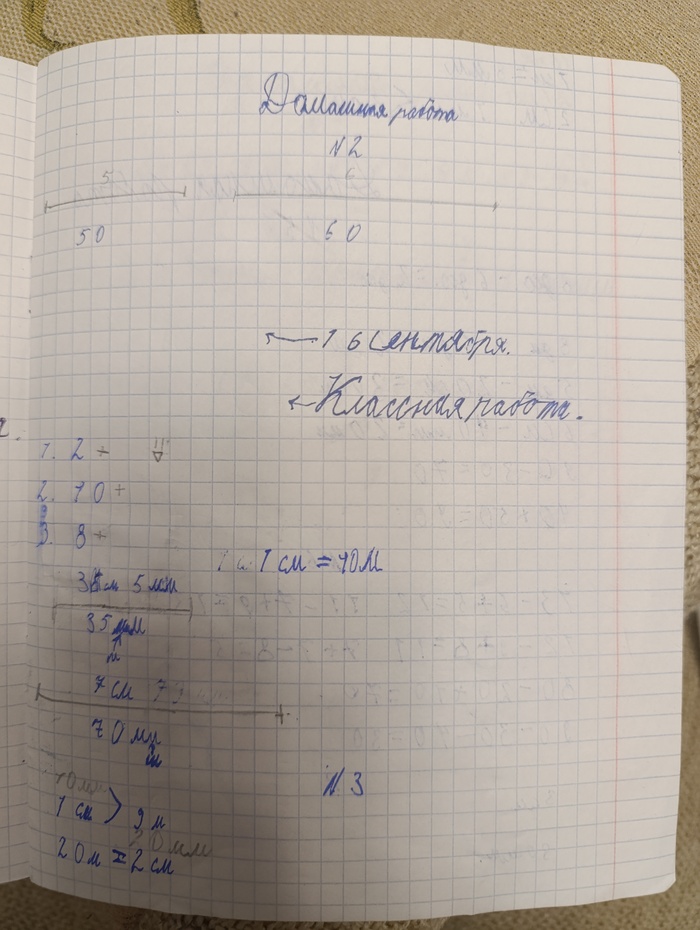 Домашняя работа
N 2
5 6
50 60
16 Сентября.
Классная работа.
1. 2 +
2. 10 +
3. 8 +
1 см = 10м
3 см 5 мм
35 мм
7 см
70 мм
N 3
10мм
1 см > 9 м
20мм
20м = 2 см